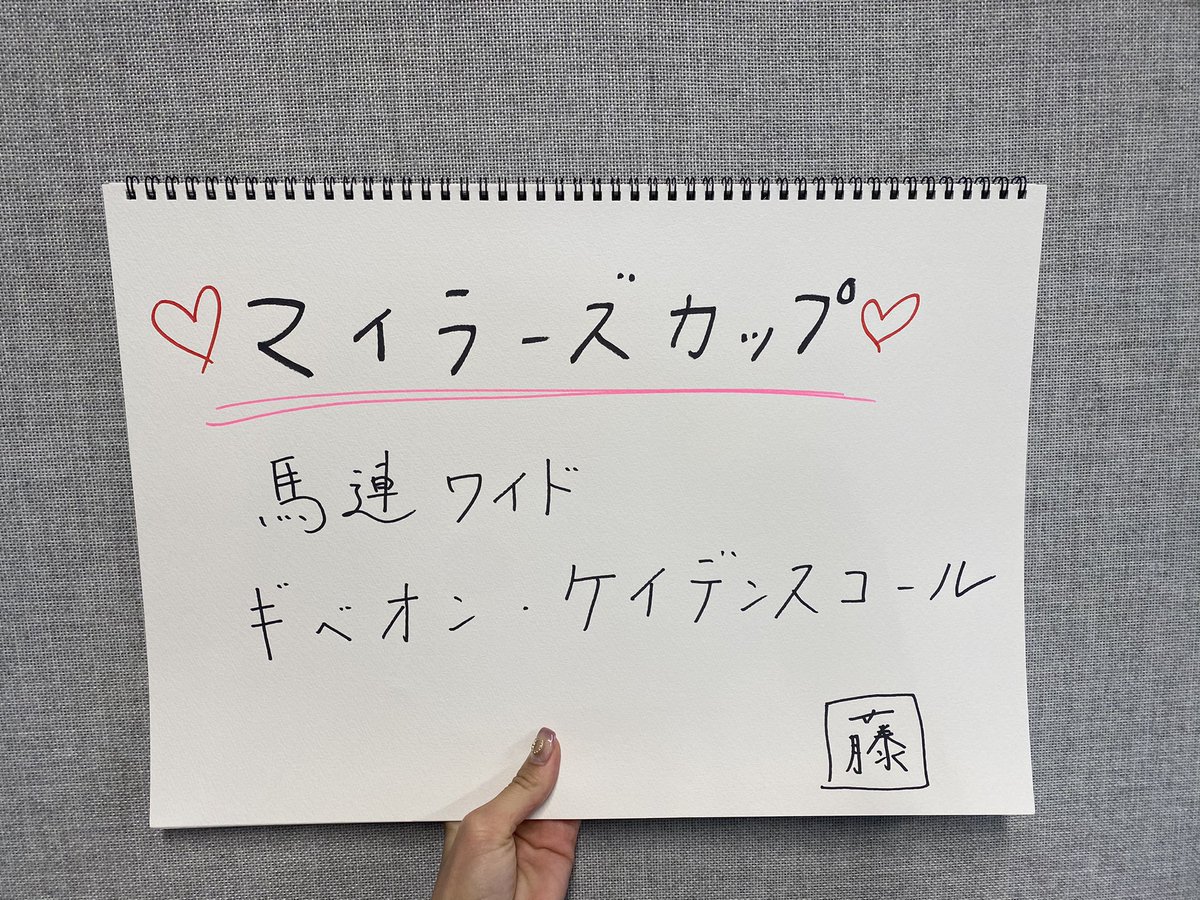 ♡マイラーズカップ♡
馬連 ワイド
ギベオン・ケイデンスコール
藤